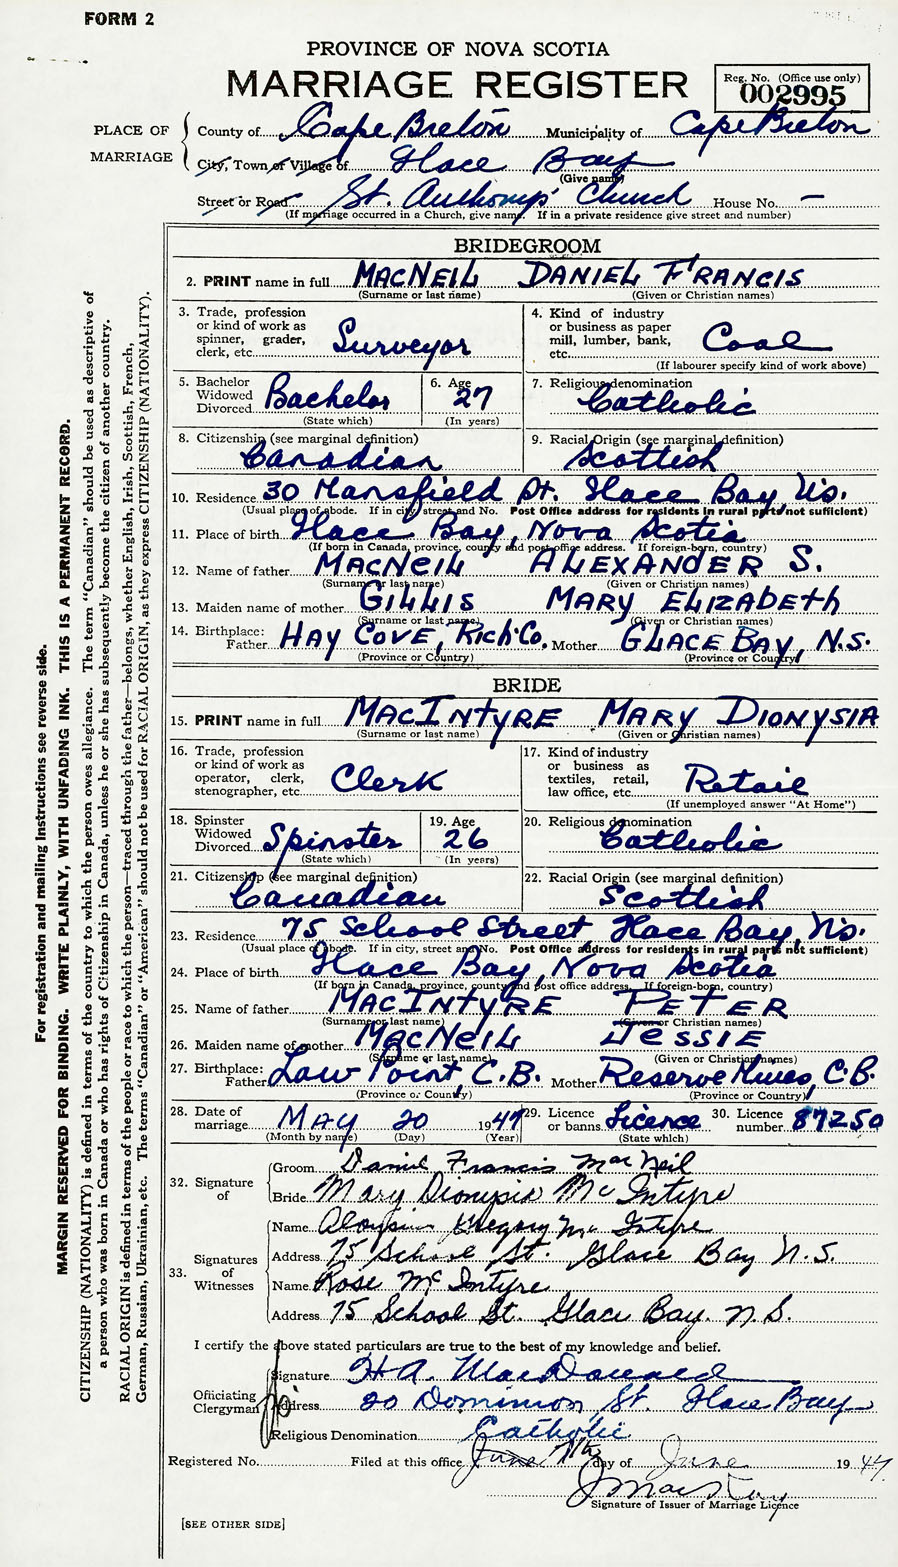 FORM 2
PROVINCE OF NOVA SCOTIA
MARRIAGE REGISTER
Reg. No. (Office use only)
002995
PLACE OF MARRIAGE
County of Cape Breton Municipality of Cape Breton
City, Town or Village of Glace Bay
(Give name)
Street or Road St. Anthony's Church House No. —
(If marriage occurred in a Church, give name. If in a private residence give street and number)
BRIDEGROOM
2. PRINT name in full MACNEIL DANIEL FRANCIS
(Surname or last name) (Given or Christian names)
3. Trade, profession or kind of work as spinner, grader, clerk, etc. Surveyor
4. Kind of industry or business as paper mill, lumber, bank, etc. Coal
(If labourer specify kind of work above)
5. Bachelor Widowed Divorced Bachelor
(State which)
6. Age 27
(In years)
7. Religious denomination Catholic
8. Citizenship (see marginal definition) Canadian
9. Racial Origin (see marginal definition) Scottish
10. Residence 30 Mansfield St. Glace Bay N.S.
(Usual place of abode. If in city, street and No. Post Office address for residents in rural parts not sufficient)
11. Place of birth Glace Bay, Nova Scotia
(If born in Canada, province, county and post office address. If foreign-born, country)
12. Name of father MACNEIL ALEXANDER S.
(Surname or last name) (Given or Christian names)
13. Maiden name of mother GILLIS MARY ELIZABETH
(Surname or last name) (Given or Christian names)
14. Birthplace: Father HAY COVE, Rich. Co. Mother GLACE BAY, N.S.
(Province or Country) (Province or Country)
BRIDE
15. PRINT name in full MACINTYRE MARY DIONYSIA
(Surname or last name) (Given or Christian names)
16. Trade, profession or kind of work as operator, clerk, stenographer, etc. Clerk
17. Kind of industry or business as textiles, retail, law office, etc. Retail
(If unemployed answer "At Home")
18. Spinster Widowed Divorced Spinster
(State which)
19. Age 26
(In years)
20. Religious denomination Catholic
21. Citizenship (see marginal definition) Canadian
22. Racial Origin (see marginal definition) Scottish
23. Residence 75 School Street Glace Bay, N.S.
(Usual place of abode. If in city, street and No. Post Office address for residents in rural parts not sufficient)
24. Place of birth Glace Bay, Nova Scotia
(If born in Canada, province, county and post office address. If foreign-born, country)
25. Name of father MACINTYRE PETER
(Surname or last name) (Given or Christian names)
26. Maiden name of mother MACNEIL JESSIE
(Surname or last name) (Given or Christian names)
27. Birthplace: Father Low Point, C.B. Mother Reserve Mines, C.B.
(Province or Country) (Province or Country)
28. Date of marriage MAY 20 1947
(Month by name) (Day) (Year)
29. Licence or banns Licence
(State which)
30. Licence number 87250
32. Signature of
Groom Daniel Francis MacNeil
Bride Mary Dionysia McIntyre
33. Signatures of Witnesses
Name Aloysius Gregory McIntyre
Address 75 School St. Glace Bay N.S.
Name Rose McIntyre
Address 75 School St. Glace Bay. N.S.
I certify the above stated particulars are true to the best of my knowledge and belief.
Officiating Clergyman
Signature H A. MacDonald
Address 20 Dominion St. Glace Bay
Religious Denomination Catholic
Registered No. Filed at this office June 7th day of June 1947
Signature of Issuer of Marriage Licence
[SEE OTHER SIDE]
For registration and mailing instructions see reverse side.
MARGIN RESERVED FOR BINDING. WRITE PLAINLY, WITH UNFADING INK. THIS IS A PERMANENT RECORD.
CITIZENSHIP (NATIONALITY) is defined in terms of the country to which the person owes allegiance. The term "Canadian" should be used as descriptive of
a person who was born in Canada or who has rights of Citizenship in Canada, unless he or she has subsequently become the citizen of another country.
RACIAL ORIGIN is defined in terms of the people or race to which the person—traced through the father—belongs, whether English, Irish, Scottish, French,
German, Russian, Ukrainian, etc. The terms "Canadian" or "American" should not be used for RACIAL ORIGIN, as they express CITIZENSHIP (NATIONALITY).